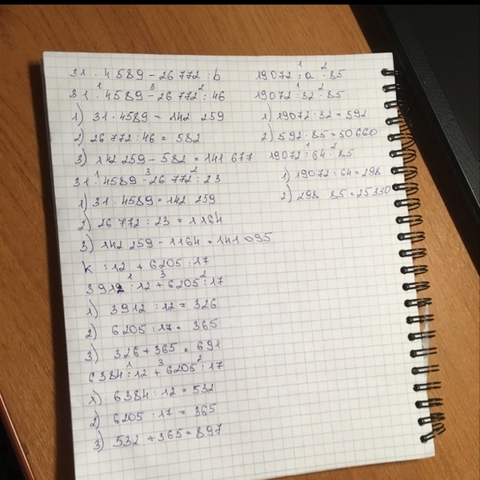 31 · 4589 - 26772 : b
31 · 4589 - 26772 : 46
1) 31 · 4589 = 142 259
2) 26772 : 46 = 582
3) 142 259 - 582 = 141 677
31 · 4589 - 26772 : 23
1) 31 4589 = 142 259
2) 26772 : 23 = 1164
3) 142 259 - 1164 = 141 095
k : 12 + 6205 : 17
3912 : 12 + 6205 : 17
1) 3912 : 12 = 326
2) 6205 : 17 = 365
3) 326 + 365 = 691
6384 : 12 + 6205 : 17
1) 6384 : 12 = 532
2) 6205 : 17 = 365
3) 532 + 365 = 897
19072 : a · 85
19072 : 32 · 85
1) 19072 : 32 = 592
2) 592 · 85 = 50660
19072 : 64 · 85
1) 19072 : 64 = 298
2) 298 85 = 25330